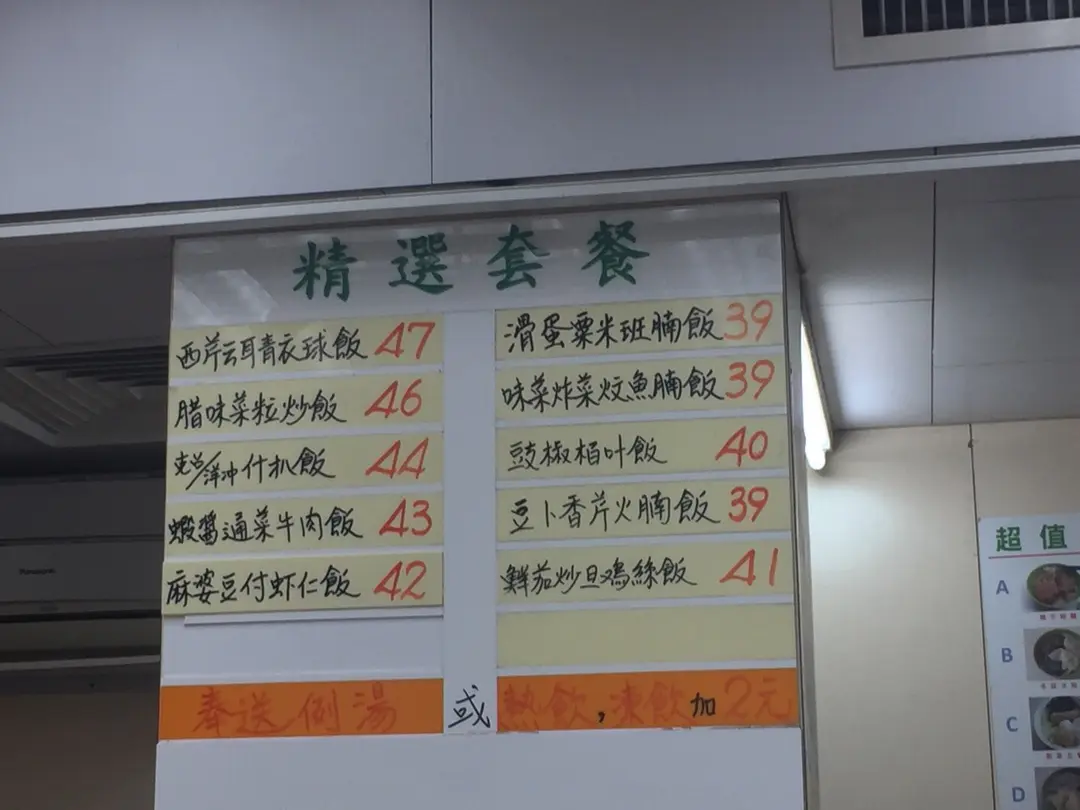 精選套餐
西芹云耳青衣球飯 47
腊味菜粒炒飯 46
吉/洋冲什扒飯 44
蝦醬通菜牛肉飯 43
麻婆豆付虾仁飯 42
滑蛋粟米班腩飯 39
味菜炸菜炆魚腩飯 39
豉椒栢叶飯 40
豆卜香芹火腩飯 39
鮮茄炒旦鸡絲飯 41
奉送例湯 或 熱飲,凍飲加2元
Panasonic
超值
A
B
C
D